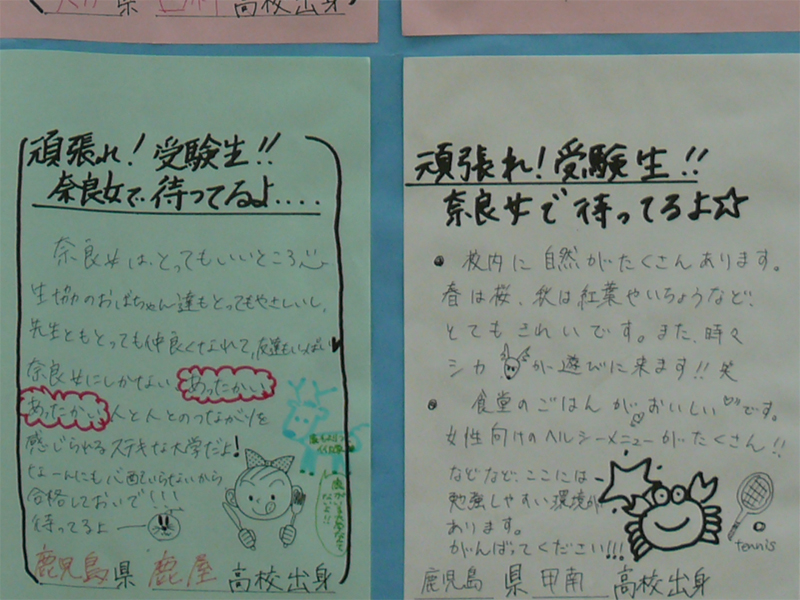 県
高校出身
頑張れ!受験生!!
奈良女で待ってるよ....
奈良女は、とってもいいところ
生協のおばちゃん達もとってもやさしいし、
先生ともとっても仲良くなれて、友達もいっぱい
奈良女にしかない あったかい
あったかい 人と人とのつながりを
感じられるステキな大学だよ!
なーんにも心配いらないから
合格しておいで!!!
待ってるよー
鹿児島県 鹿屋 高校出身
頑張れ!受験生!!
奈良女で待ってるよ☆
• 校内に自然がたくさんあります。
春は桜、秋は紅葉やいちょうなど、
とてもきれいです。また、時々
シカ が遊びに来ます!!笑
• 食堂のごはんがおいしい♡です。
女性向けのヘルシーメニューがたくさん!!
などなど、ここには
勉強しやすい環境が
あります。
がんばってください!!!
tennis
鹿児島 県 甲南 高校出身